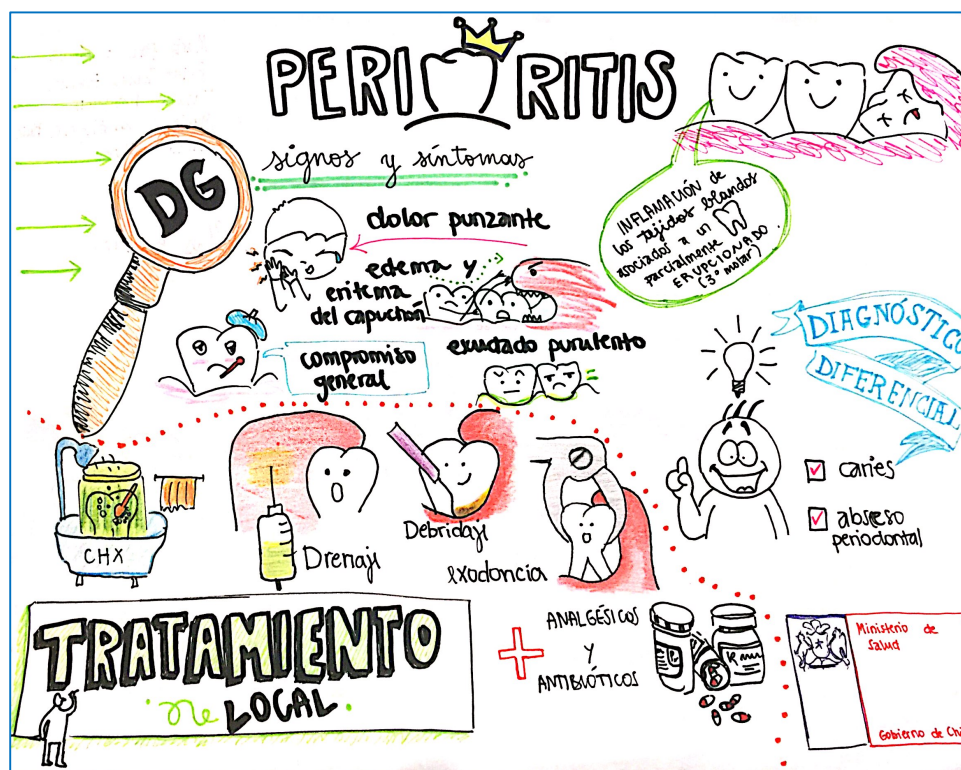 PERI RITIS
DG
signos y síntomas
dolor punzante
edema y
eritema
del capuchón
compromiso
general
exudado purulento
INFLAMACIÓN de
los tejidos blandos
asociados a un
parcialmente
ERUPCIONADO
(3º molar)
DIAGNÓSTICO
DIFERENCIAL
caries
absceso
periodontal
CHX
Drenaje
Debridaje
exodoncia
TRATAMIENTO
LOCAL.
+
ANALGÉSICOS
Y
ANTIBIÓTICOS
Ministerio de
Salud
Gobierno de Chi